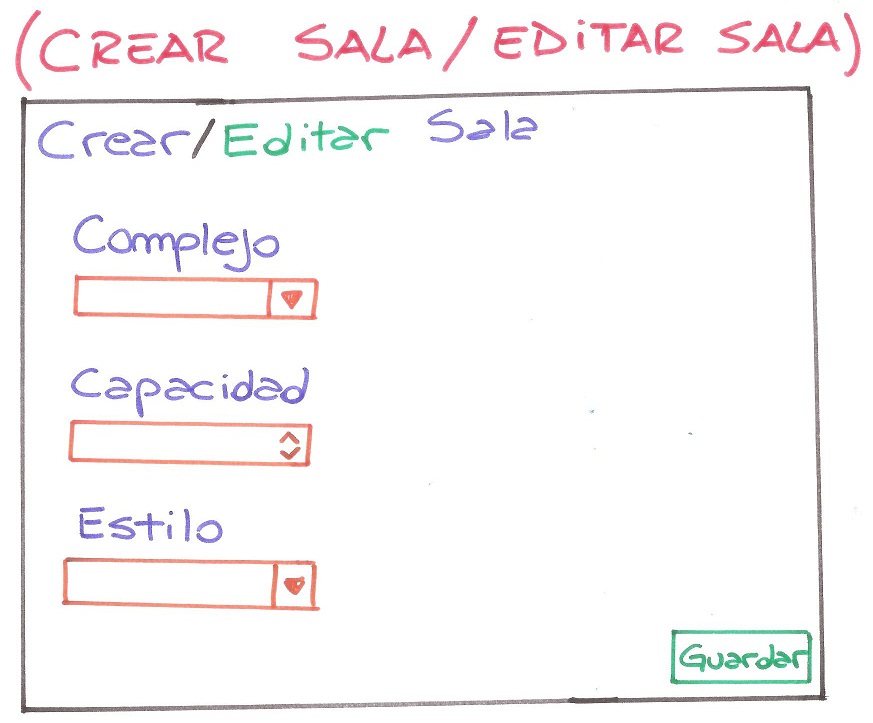 (CREAR SALA/EDITAR SALA)
Crear/Editar Sala
Complejo
Capacidad
Estilo
Guardar